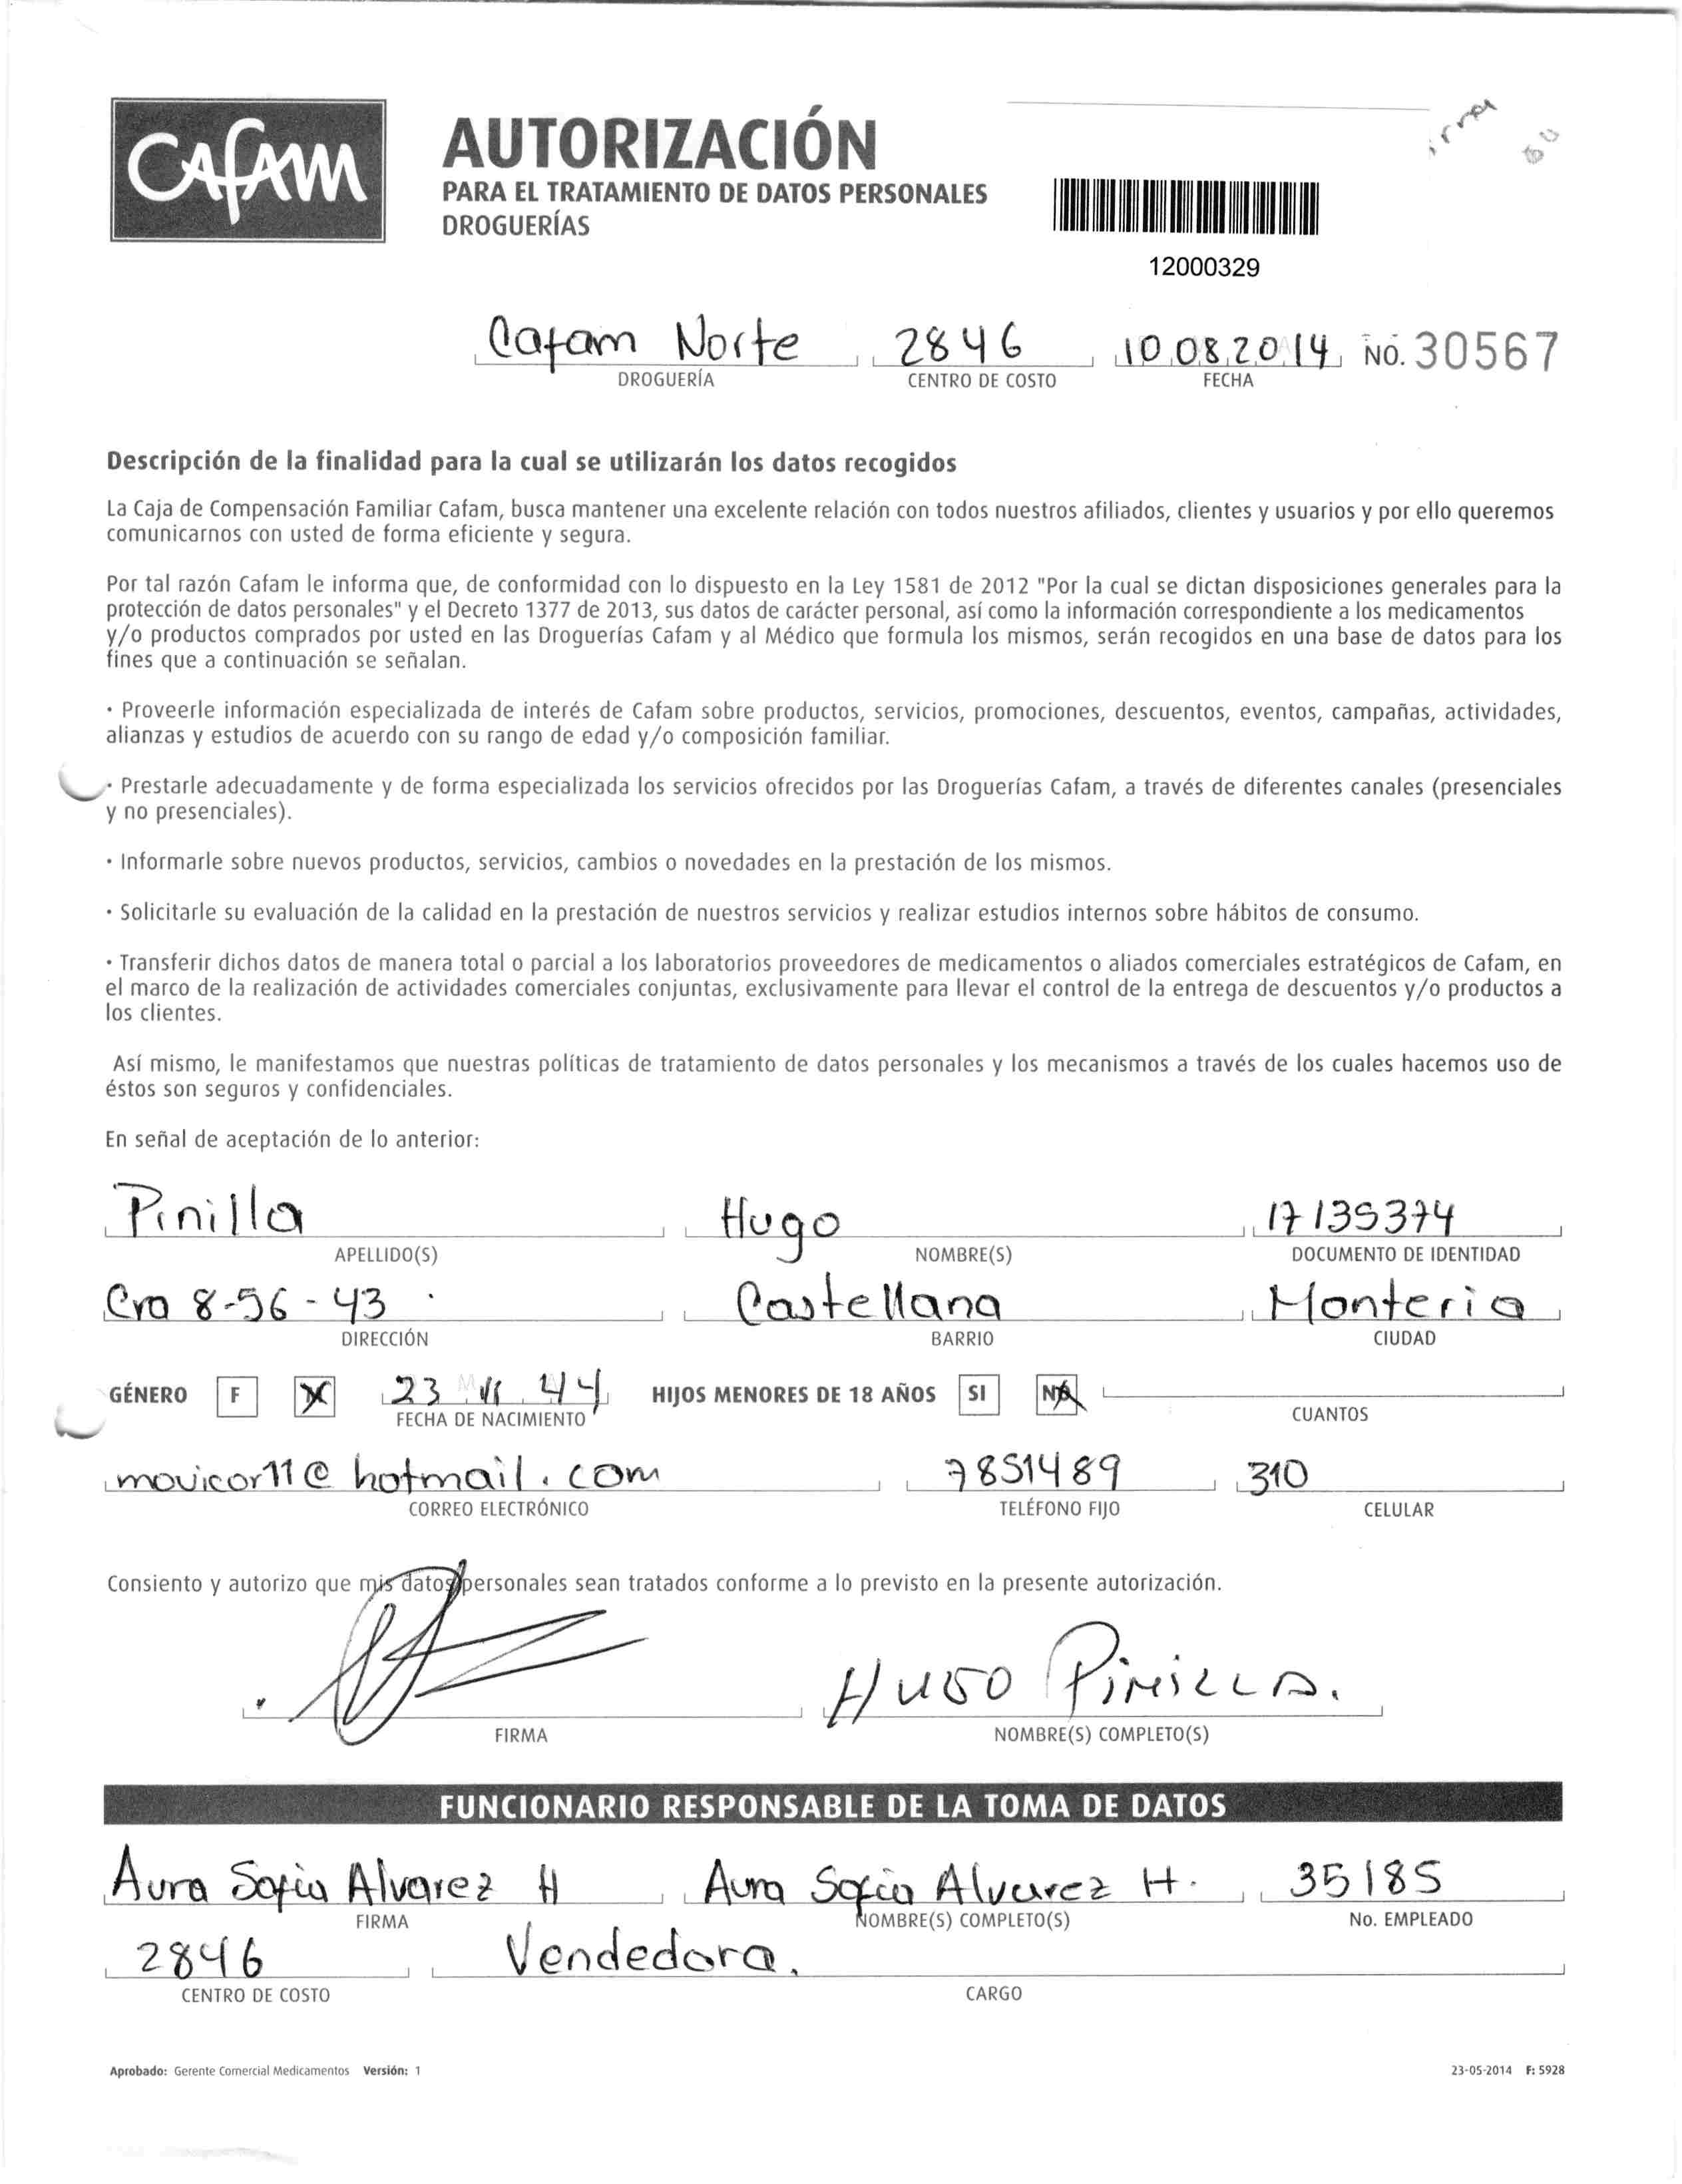 Cafam
AUTORIZACIÓN
PARA EL TRATAMIENTO DE DATOS PERSONALES
DROGUERÍAS
12000329
Cafam Norte 2846 10 08 2014 No. 30567
DROGUERÍA CENTRO DE COSTO FECHA
Descripción de la finalidad para la cual se utilizarán los datos recogidos
La Caja de Compensación Familiar Cafam, busca mantener una excelente relación con todos nuestros afiliados, clientes y usuarios y por ello queremos
comunicarnos con usted de forma eficiente y segura.
Por tal razón Cafam le informa que, de conformidad con lo dispuesto en la Ley 1581 de 2012 "Por la cual se dictan disposiciones generales para la
protección de datos personales" y el Decreto 1377 de 2013, sus datos de carácter personal, así como la información correspondiente a los medicamentos
y/o productos comprados por usted en las Droguerías Cafam y al Médico que formula los mismos, serán recogidos en una base de datos para los
fines que a continuación se señalan.
· Proveerle información especializada de interés de Cafam sobre productos, servicios, promociones, descuentos, eventos, campañas, actividades,
alianzas y estudios de acuerdo con su rango de edad y/o composición familiar.
· Prestarle adecuadamente y de forma especializada los servicios ofrecidos por las Droguerías Cafam, a través de diferentes canales (presenciales
y no presenciales).
· Informarle sobre nuevos productos, servicios, cambios o novedades en la prestación de los mismos.
· Solicitarle su evaluación de la calidad en la prestación de nuestros servicios y realizar estudios internos sobre hábitos de consumo.
· Transferir dichos datos de manera total o parcial a los laboratorios proveedores de medicamentos o aliados comerciales estratégicos de Cafam, en
el marco de la realización de actividades comerciales conjuntas, exclusivamente para llevar el control de la entrega de descuentos y/o productos a
los clientes.
Así mismo, le manifestamos que nuestras políticas de tratamiento de datos personales y los mecanismos a través de los cuales hacemos uso de
éstos son seguros y confidenciales.
En señal de aceptación de lo anterior:
Pinilla Hugo 17135374
APELLIDO(S) NOMBRE(S) DOCUMENTO DE IDENTIDAD
Cra 8-56-43 Castellana Monteria
DIRECCIÓN BARRIO CIUDAD
GÉNERO F X 23 VI 44 HIJOS MENORES DE 18 AÑOS SI NO
FECHA DE NACIMIENTO CUANTOS
movicor11@hotmail.com 7851489 310
CORREO ELECTRÓNICO TELÉFONO FIJO CELULAR
Consiento y autorizo que mis datos personales sean tratados conforme a lo previsto en la presente autorización.
HUGO PINILLA.
FIRMA NOMBRE(S) COMPLETO(S)
FUNCIONARIO RESPONSABLE DE LA TOMA DE DATOS
Aura Sofia Alvarez H Aura Sofia Alvarez H. 35185
FIRMA NOMBRE(S) COMPLETO(S) No. EMPLEADO
2846 Vendedora.
CENTRO DE COSTO CARGO
Aprobado: Gerente Comercial Medicamentos Versión: 1 23-05-2014 F: 5928